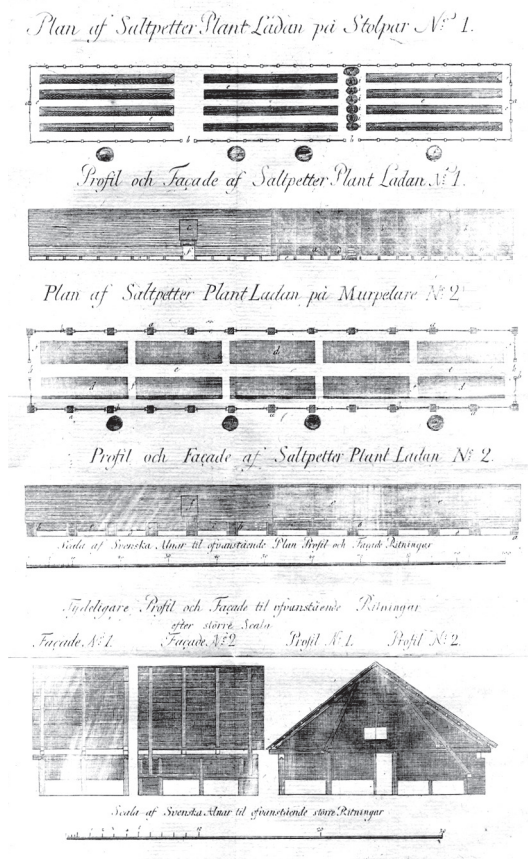 Plan af Saltpetter Plant Ladan på Stolpar N:o 1.
Profil och Façade af Saltpetter Plant Ladan N:o 1.
Plan af Saltpetter Plant Ladan på Murpelare N:o 2
Profil och Façade af Saltpetter Plant Ladan N:o 2.
Scala af Svenska Alnar til ofvanstående Plan Profil och Façade Ritningar
Tydeligare Profil och Façade til ofvanstående Ritningar
efter större Scala
Façade N:o 1. Façade N:o 2 Profil N:o 1. Profil N:o 2.
Scala af Svenska Alnar til ofvanstående större Ritningar